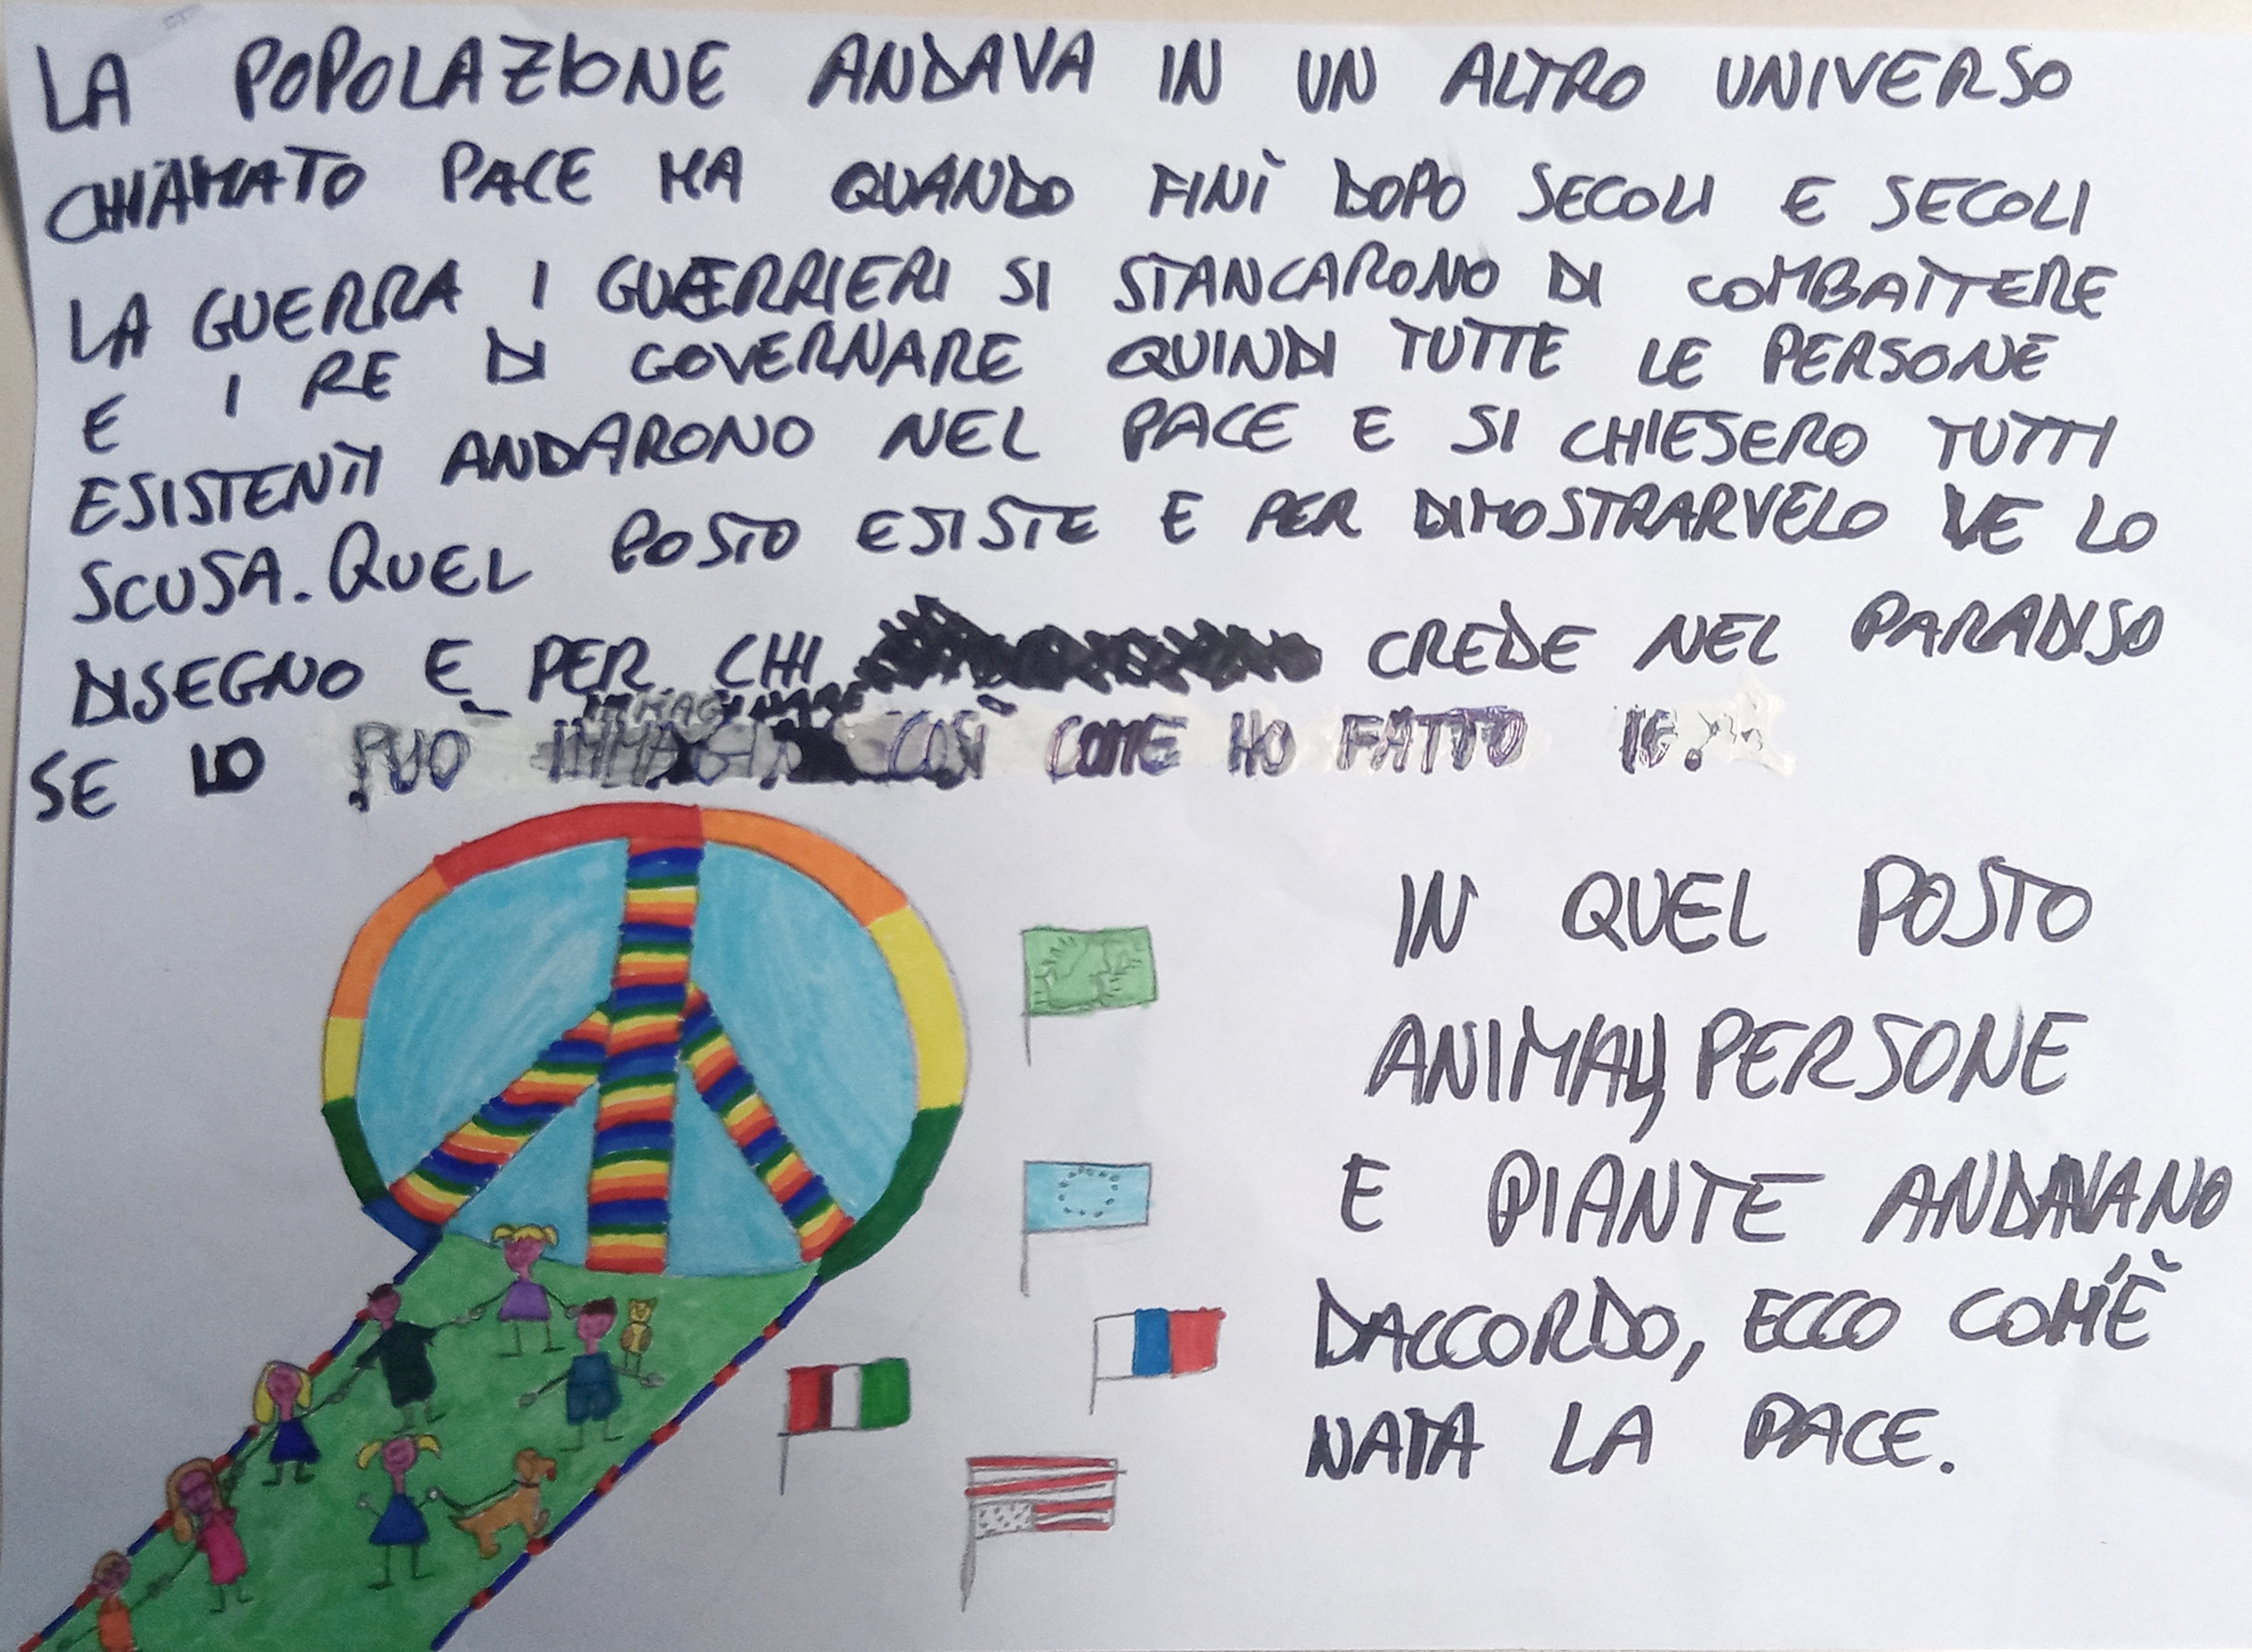 LA POPOLAZIONE ANDAVA IN UN ALTRO UNIVERSO
CHIAMATO PACE MA QUANDO FINÌ DOPO SECOLI E SECOLI
LA GUERRA I GUERRIERI SI STANCARONO DI COMBATTERE
E I RE DI GOVERNARE QUINDI TUTTE LE PERSONE
ESISTENTI ANDARONO NEL PACE E SI CHIESERO TUTTI
SCUSA. QUEL POSTO ESISTE E PER DIMOSTRARVELO VE LO
DISEGNO E PER CHI CREDE NEL PARADISO
SE LO PUÒ IMMAGINARE COSÌ COME HO FATTO IO.
IN QUEL POSTO
ANIMALI, PERSONE
E PIANTE ANDAVANO
DACCORDO, ECCO COM'È
NATA LA PACE.